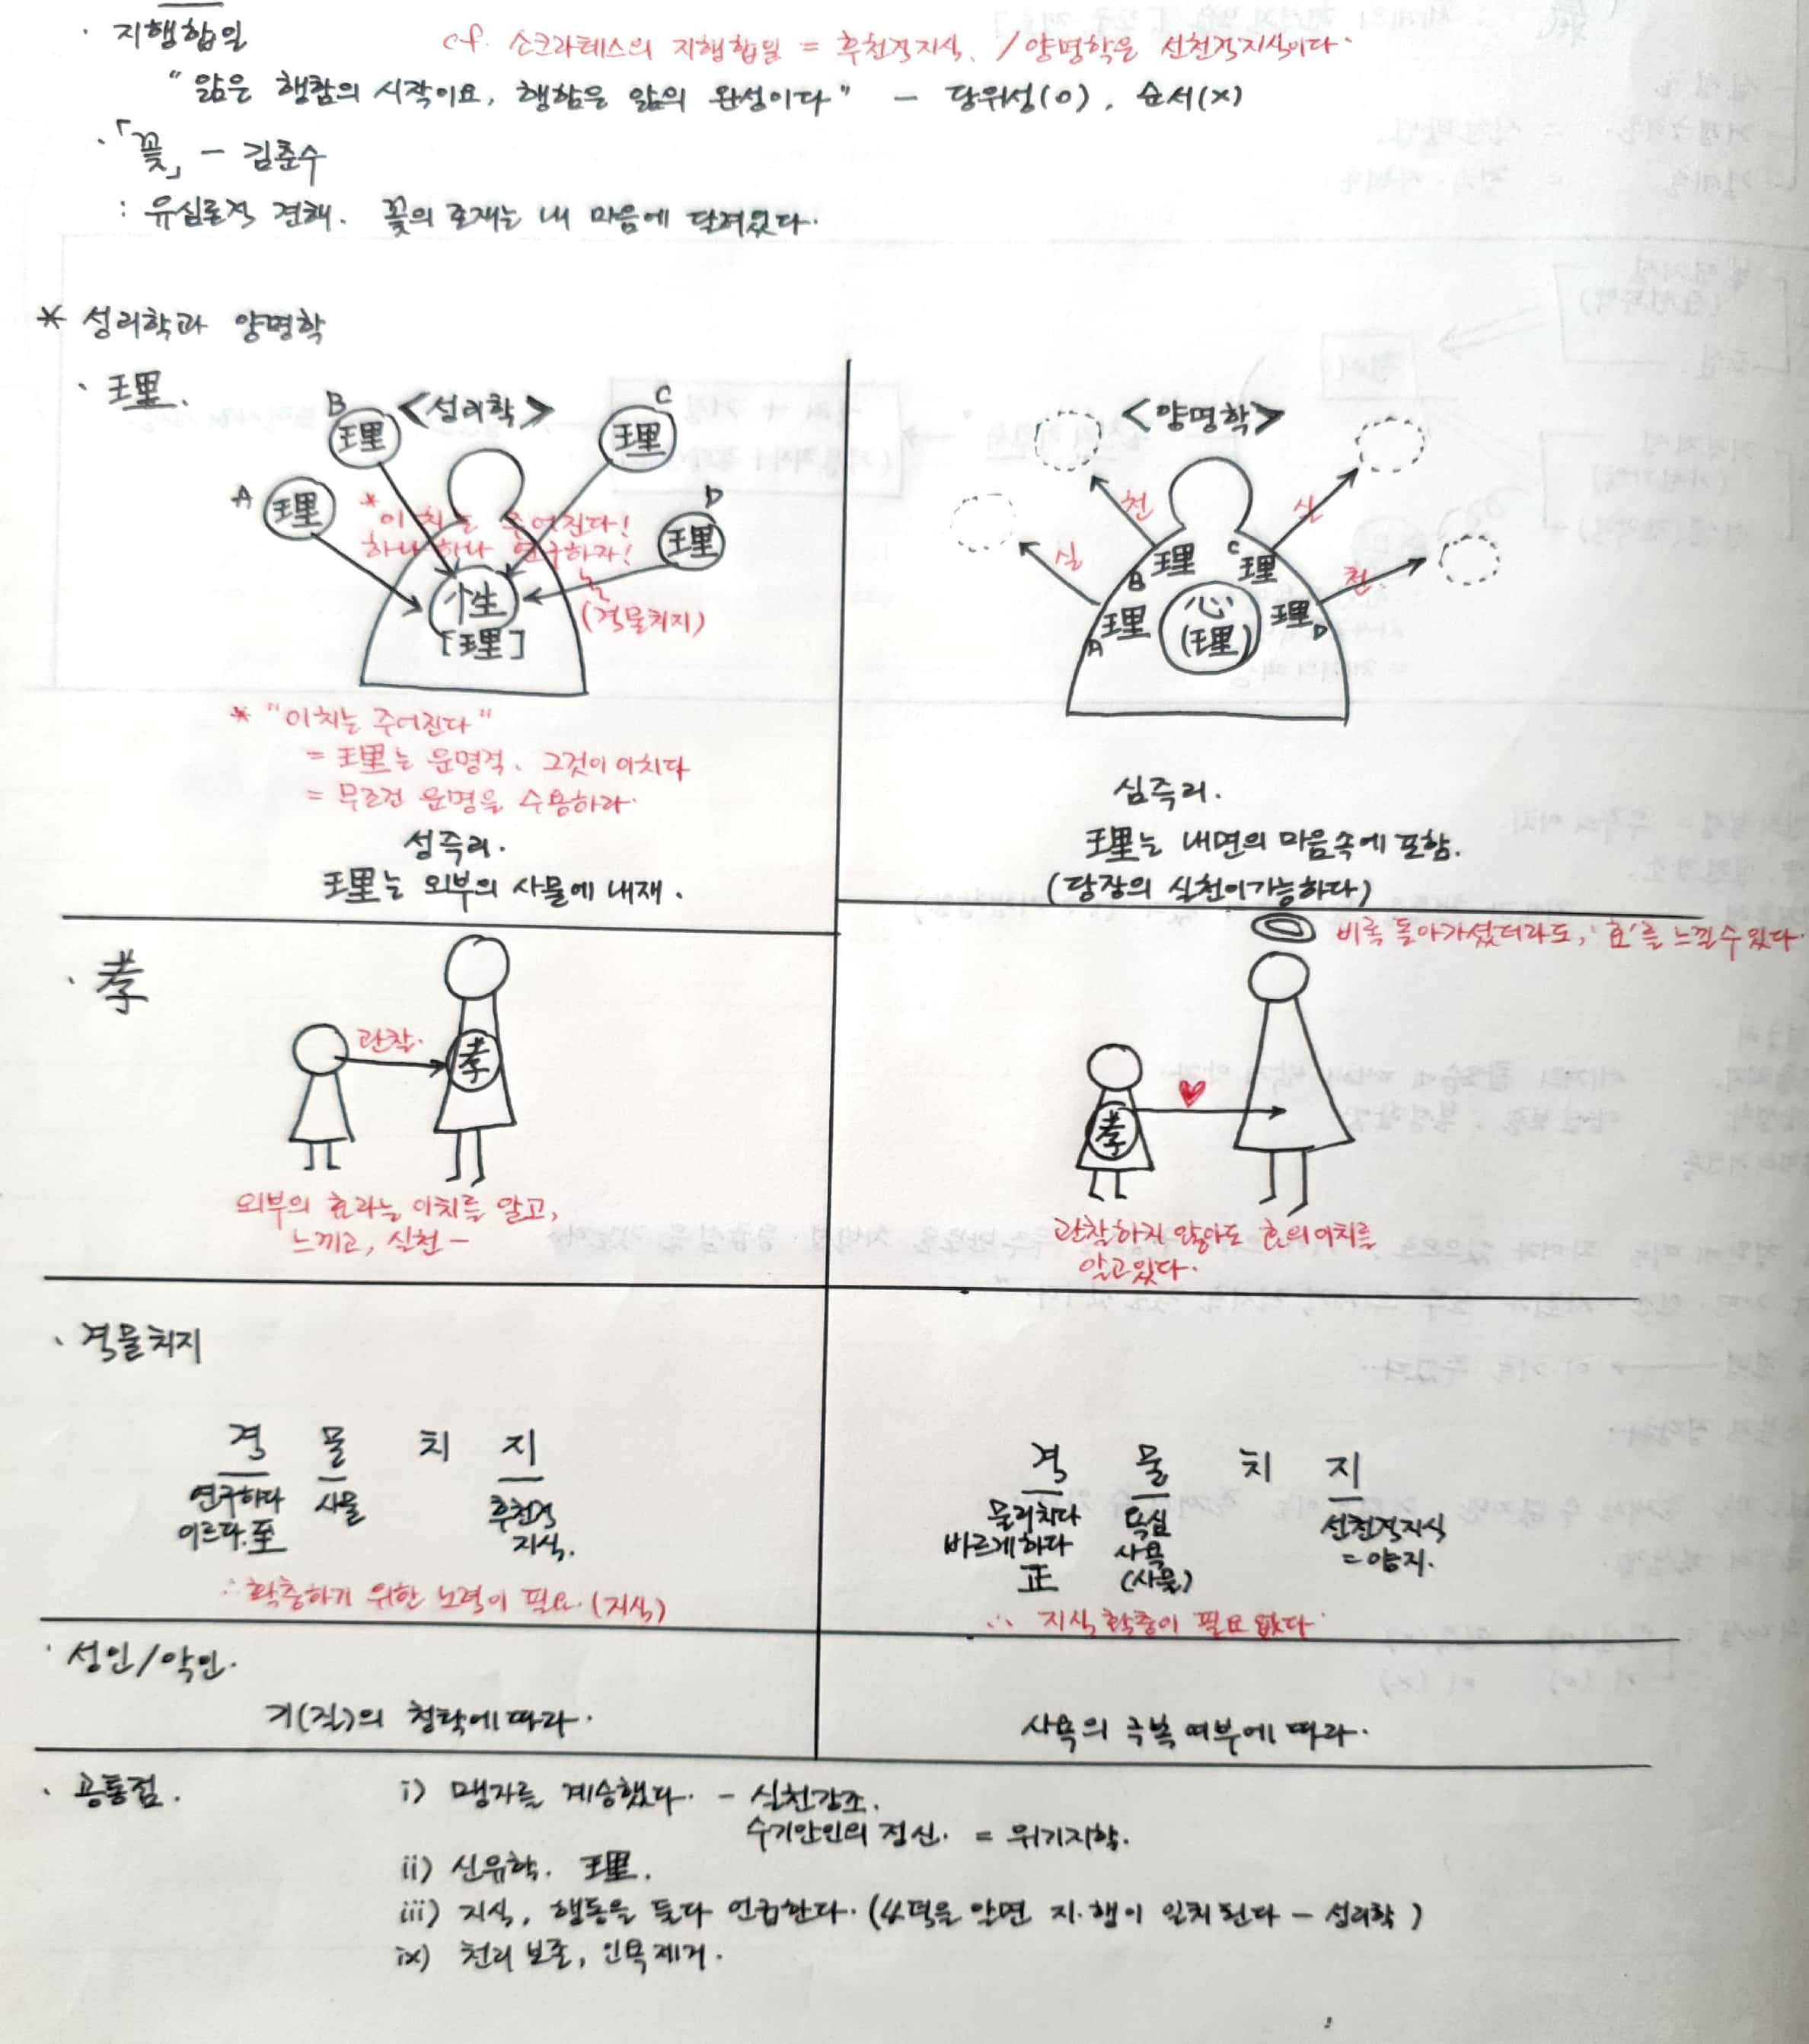 · 지행합일
cf. 소크라테스의 지행합일 = 후천적지식. / 양명학은 선천적지식이다.
"앎은 행함의 시작이요, 행함은 앎의 완성이다" - 당위성(O), 순서(X)
·「꽃」 - 김춘수
: 유심론적 견해. 꽃의 존재는 내 마음에 달려있다.
* 성리학과 양명학
· 理.
<성리학>
A 理
B 理
C 理
D 理
* 이치는 주어진다!
하나하나 연구하자!
(격물치지)
性
[理]
* "이치는 주어진다"
= 理는 운명적. 그것이 이치다
= 무조건 운명을 수용하라.
성즉리.
理는 외부의 사물에 내재.
<양명학>
실
천
실
천
A 理
B 理
C 理
理 D
心
(理)
심즉리.
理는 내면의 마음속에 포함.
(당장의 실천이 가능하다)
· 孝
관찰.
孝
외부의 효라는 이치를 알고,
느끼고, 실천 -
비록 돌아가셨더라도, '효'를 느낄 수 있다.
孝
관찰하지 않아도 효의 이치를
알고있다.
· 격물치지
격 물 치 지
연구하다
이르다. 至
사물
후천적
지식.
∴ 확충하기 위한 노력이 필요. (지식)
격 물 치 지
물리치다
바르게하다
正
욕심
사욕
(사물)
선천적지식
= 양지.
∴ 지식 확충이 필요없다.
· 성인/악인.
기(질)의 청탁에 따라.
사욕의 극복 여부에 따라.
· 공통점.
i) 맹자를 계승했다. - 실천강조.
수기안인의 정신. = 위기지학.
ii) 신유학. 理.
iii) 지식, 행동을 둘다 언급한다. (4덕을 알면 지.행이 일치된다 - 성리학)
ix) 천리 보존, 인욕 제거.